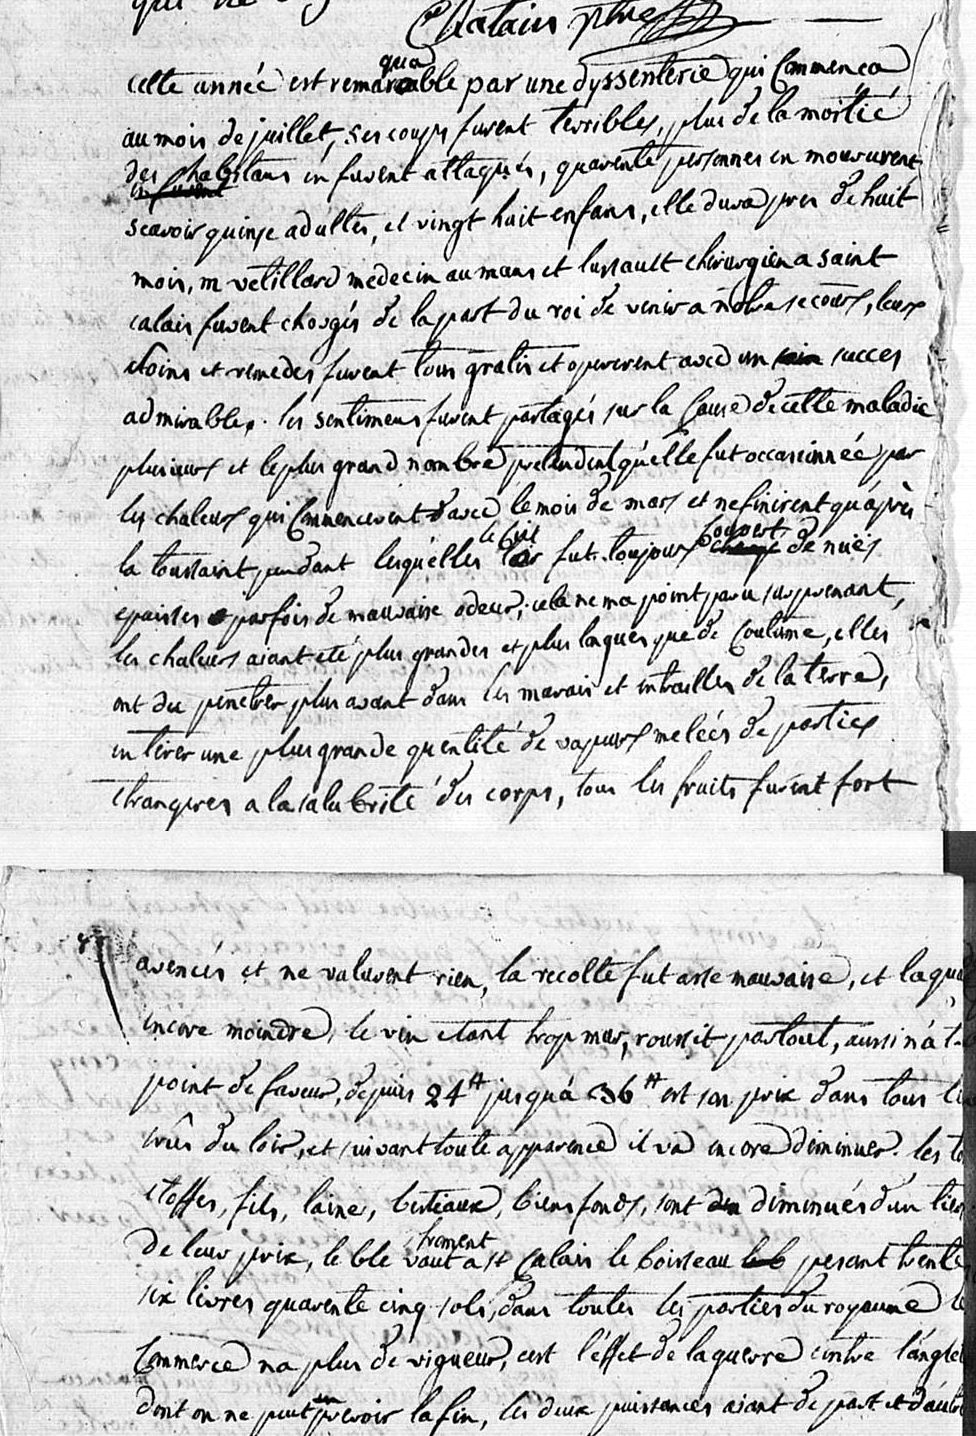 qui ne
Chatain ptre
cette année est remarquable par une dyssenterie qui Commença
au mois de juillet, ses coups furent terribles, plus de la moitié
des habitans en furent attaqués, quarente personnes en moururent
scavoir quinze adultes, et vingt huit enfans, elle dura pres de huit
mois, m vetillard medecin au mans et lussault chirurgien a saint
calais furent chargés de la part du roi de venir a nôtre secours, leurs
soins et remedes furent tous gratis et opererent avec un succes
admirable. les sentimens furent partagés sur la Cause de cette maladie
plusieurs et le plus grand nombre pretendent qu'elle fut occasionnée par
les chaleurs qui Commencerent avec le mois de mars et ne finirent qu'après
la toussaint pendant lesquelles le Ciel fut toujours couvert de nuës
epaisses parfois de mauvaise odeur, cela ne ma point paru surprenant,
les chaleurs aiant eté plus grandes et plus longues que de Coutume, elles
ont du penetrer plus avant dans les marais et entrailles de la terre,
en tirer une plus grande quentité de vapeurs melées de parties
etrangeres a la salubrité des corps, tous les fruits furent fort
avencés et ne valurent rien, la recolte fut asse mauvaise, et la
encore moindre, le vin etant trop mur, roussit partout, aussi n'a
point de faveur, depuis 24tt jusqu'à 36tt est son prix dans tous
crûs du loir, et suivant toute apparence il va encore diminuer. les
etoffes, fils, laine, bestiaux, biens fonds, sont diminués d'un tiers
de leur prix, le blé froment vaut a st Calais le boisseau pesant trente
six livres quarente cinq sols, dans toutes les parties du royaume le
Commerce na plus de vigueur, cest l'éffet de la guerre contre l'angle
dont on ne peut prevoir la fin, les deux puissances aiant de part et d'autre